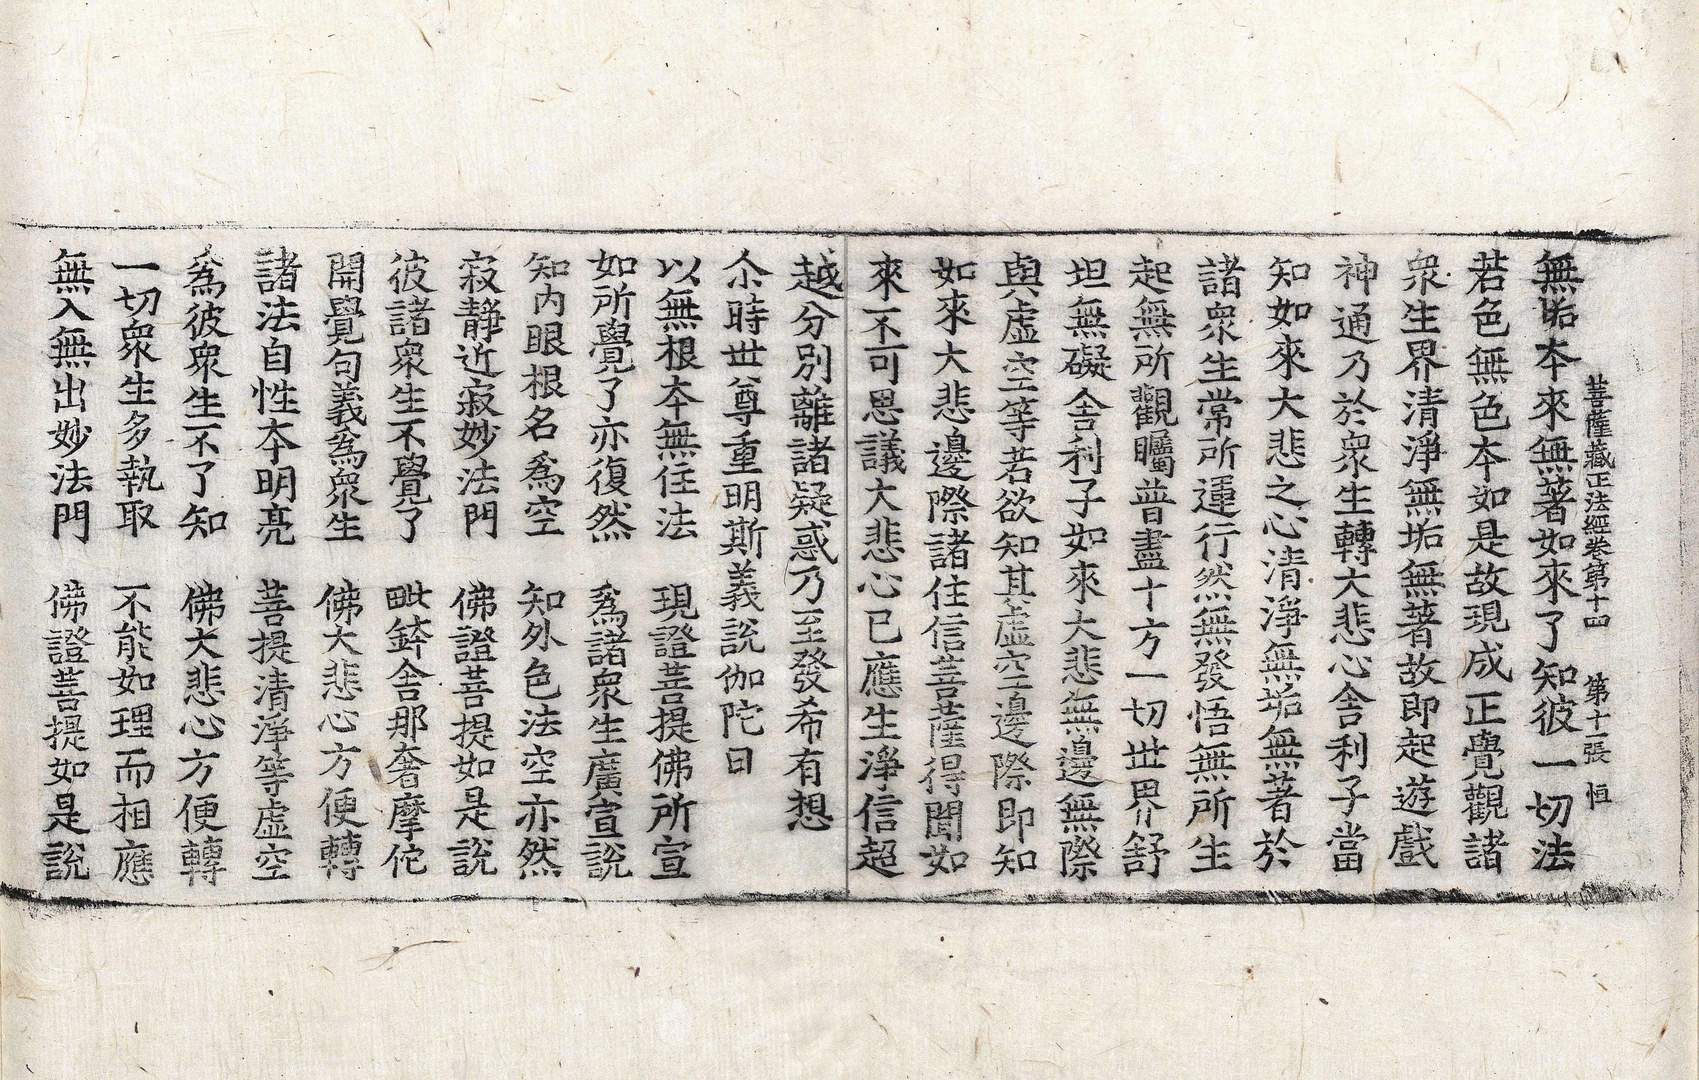 菩薩藏正法經卷第十四　第十一張　恒
無垢本來無著如來了知彼一切法
若色無色本如是故現成正覺觀諸
衆生界清淨無垢無著故即起遊戲
神通乃於衆生轉大悲心舍利子當
知如來大悲之心清淨無垢無著於
諸衆生常所運行然無發悟無所生
起無所觀矚普盡十方一切世界舒
坦無礙舍利子如來大悲無邊無際
與虛空等若欲知其虛空邊際即知
如來大悲邊際諸住信菩薩得聞如
來不可思議大悲心已應生淨信超
越分別離諸疑惑乃至發希有想
尒時世尊重明斯義說伽陀曰
以無根本無住法　現證菩提佛所宣
如所覺了亦復然　爲諸衆生廣宣說
知内眼根名爲空　知外色法空亦然
寂靜近寂妙法門　佛證菩提如是說
彼諸衆生不覺了　毗鉢舍那奢摩佗
開覺句義爲衆生　佛大悲心方便轉
諸法自性本明亮　菩提清淨等虛空
爲彼衆生不了知　佛大悲心方便轉
一切衆生多執取　不能如理而相應
無入無出妙法門　佛證菩提如是說